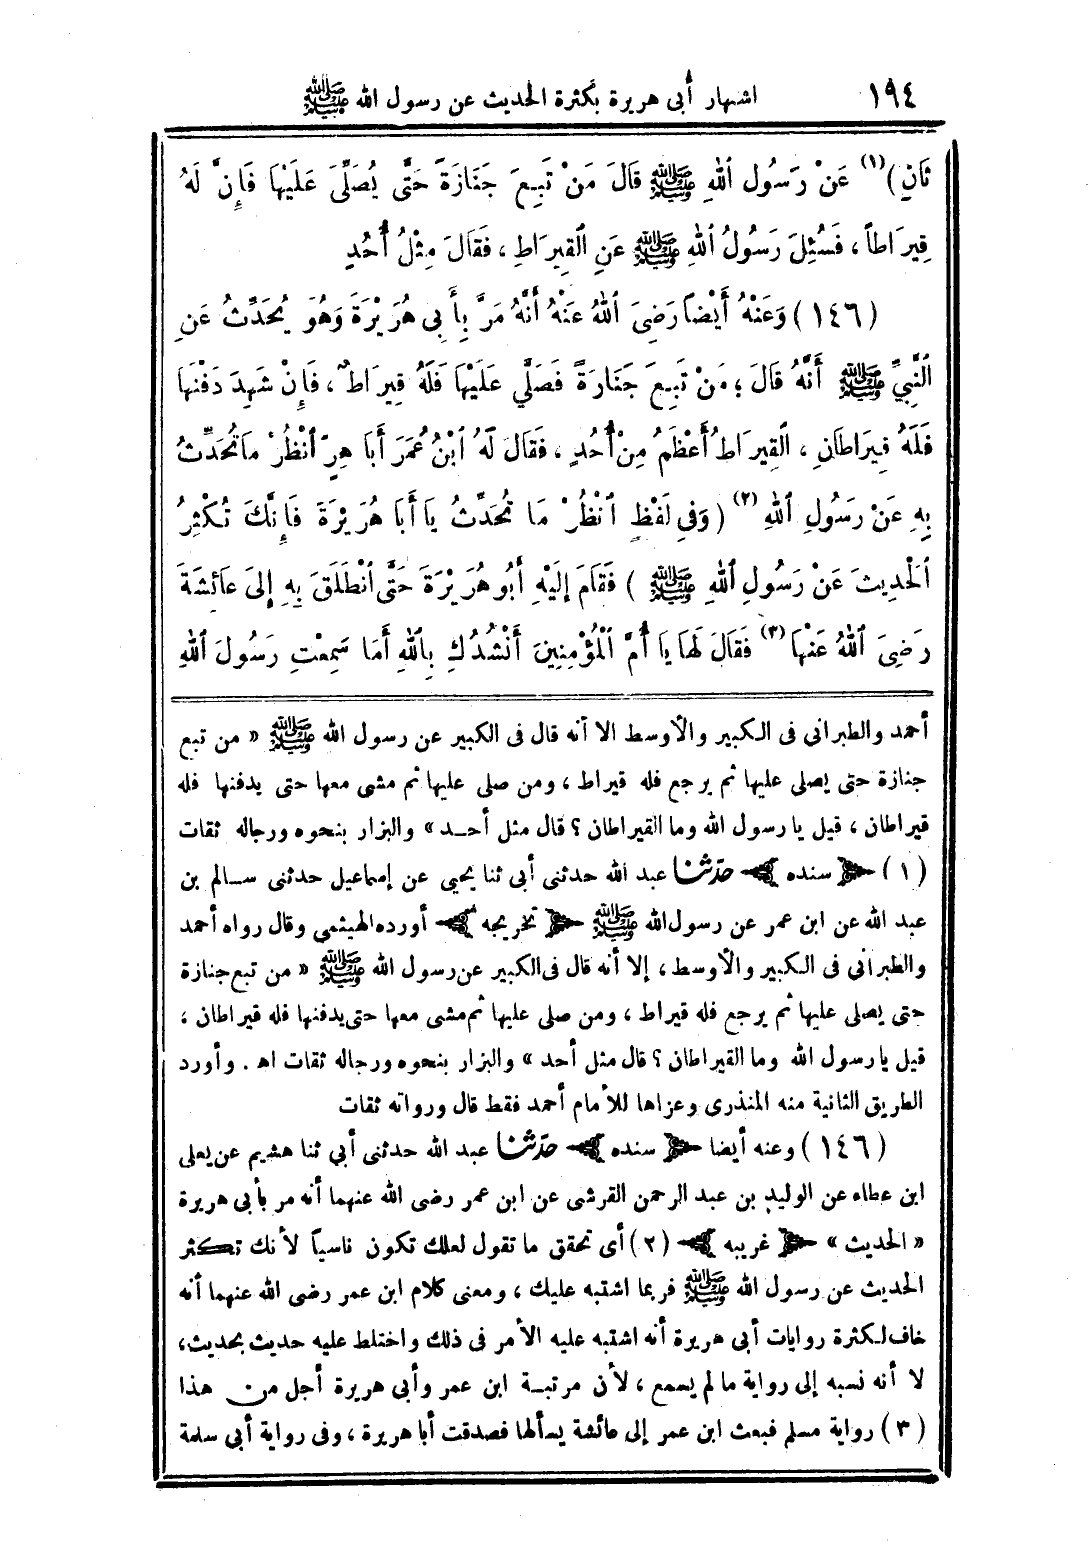 ١٩٤ اشتهار أبى هريرة بكثرة الحديث عن رسول الله ﷺ
ثَانٍ)(١) عَنْ رَسُولِ ٱللهِ ﷺ قَالَ مَنْ تَبِعَ جَنَازَةً حَتَّى يُصَلِّىَ عَلَيْهَا فَإِنَّ لَهُ
قِيرَاطاً ، فَسُئِلَ رَسُولُ ٱللهِ ﷺ عَنِ ٱلْقِيرَاطِ ، فَقَالَ مِثْلُ أُحُدٍ
(١٤٦) وَعَنْهُ أَيْضاً رَضِىَ ٱللهُ عَنْهُ أَنَّهُ مَرَّ بِأَبِى هُرَيْرَةَ وَهُوَ يُحَدِّثُ عَنِ
ٱلنَّبِىِّ ﷺ أَنَّهُ قَالَ ؛ مَنْ تَبِعَ جَنَازَةً فَصَلَّي عَلَيْهَا فَلَهُ قِيرَاطٌ ، فَإِنْ شَهِدَ دَفْنَهَا
فَلَهُ قِيرَاطَانِ ، ٱلْقِيرَاطُ أَعْظَمُ مِنْ أُحُدٍ ، فَقَالَ لَهُ ٱبْنُ عُمَرَ أَبَا هِرٍّ ٱنْظُرْ مَا تُحَدِّثُ
بِهِ عَنْ رَسُولِ ٱللهِ(٢) (وَفِى لَفْظٍ ٱنْظُرْ مَا تُحَدِّثُ يَا أَبَا هُرَيْرَةَ فَإِنَّكَ تُكْثِرُ
ٱلْحَدِيثَ عَنْ رَسُولِ ٱللهِ ﷺ ) فَقَامَ إِلَيْهِ أَبُو هُرَيْرَةَ حَتَّى ٱنْطَلَقَ بِهِ إِلَى عَائِشَةَ
رَضِىَ ٱللهُ عَنْهَا(٣) فَقَالَ لَهَا يَا أُمَّ ٱلْمُؤْمِنِينَ أَنْشُدُكِ بِٱللهِ أَمَا سَمِعْتِ رَسُولَ ٱللهِ
أحمد والطبراني فى الكبير والأوسط الا أنه قال فى الكبير عن رسول الله ﷺ « من تبع
جنازة حتى يصلى عليها ثم يرجع فله قيراط ، ومن صلى عليها ثم مشى معها حتى يدفنها فله
قيراطان ، قيل يا رسول الله وما القيراطان ؟ قال مثل أحد » والبزار بنحوه ورجاله ثقات
(١) سنده حدّثنا عبد الله حدثنى أبي ثنا يحيى عن إسماعيل حدثنى سالم بن
عبد الله عن ابن عمر عن رسول الله ﷺ تخريجه أورده الهيثمى وقال رواه أحمد
والطبراني فى الكبير والأوسط ، إلا أنه قال فى الكبير عن رسول الله ﷺ « من تبع جنازة
حتى يصلى عليها ثم يرجع فله قيراط ، ومن صلى عليها ثم مشى معها حتى يدفنها فله قيراطان ،
قيل يا رسول الله وما القيراطان ؟ قال مثل أحد » والبزار بنحوه ورجاله ثقات اهـ . وأورد
الطريق الثانية منه المنذرى وعزاها للأمام أحمد فقط قال ورواته ثقات
(١٤٦) وعنه أيضا سنده حدّثنا عبد الله حدثنى أبي ثنا هشيم عن يعلى
ابن عطاء عن الوليد بن عبد الرحمن القرشى عن ابن عمر رضى الله عنهما أنه مر بأبى هريرة
« الحديث » غريبه (٢) أى تحقق ما تقول لعلك تكون ناسياً لأنك تكثر
الحديث عن رسول الله ﷺ فربما اشتبه عليك ، ومعنى كلام ابن عمر رضى الله عنهما أنه
خاف لكثرة روايات أبى هريرة أنه اشتبه عليه الأمر فى ذلك واختلط عليه حديث بحديث ،
لا أنه نسبه إلى رواية ما لم يسمع ، لأن مرتبة ابن عمر وأبى هريرة أجل من هذا
(٣) رواية مسلم فبعث ابن عمر إلى عائشة يسألها فصدقت أبا هريرة ، وفى رواية أبى سلمة